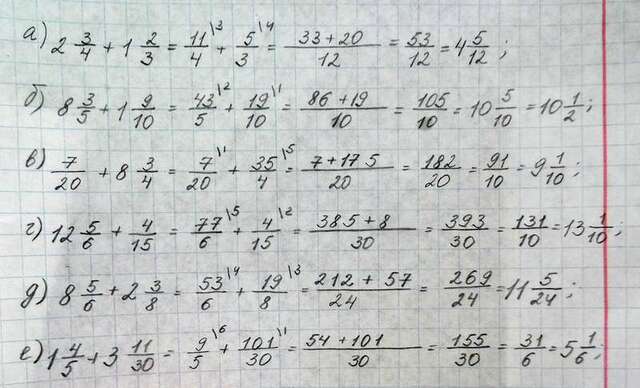 а) 2 3/4 + 1 2/3 = 11/4 \3 + 5/3 \4 = (33 + 20)/12 = 53/12 = 4 5/12;
б) 8 3/5 + 1 9/10 = 43/5 \2 + 19/10 \1 = (86 + 19)/10 = 105/10 = 10 5/10 = 10 1/2;
в) 7/20 + 8 3/4 = 7/20 \1 + 35/4 \5 = (7 + 175)/20 = 182/20 = 91/10 = 9 1/10;
г) 12 5/6 + 4/15 = 77/6 \5 + 4/15 \2 = (385 + 8)/30 = 393/30 = 131/10 = 13 1/10;
д) 8 5/6 + 2 3/8 = 53/6 \4 + 19/8 \3 = (212 + 57)/24 = 269/24 = 11 5/24;
е) 1 4/5 + 3 11/30 = 9/5 \6 + 101/30 \1 = (54 + 101)/30 = 155/30 = 31/6 = 5 1/6;